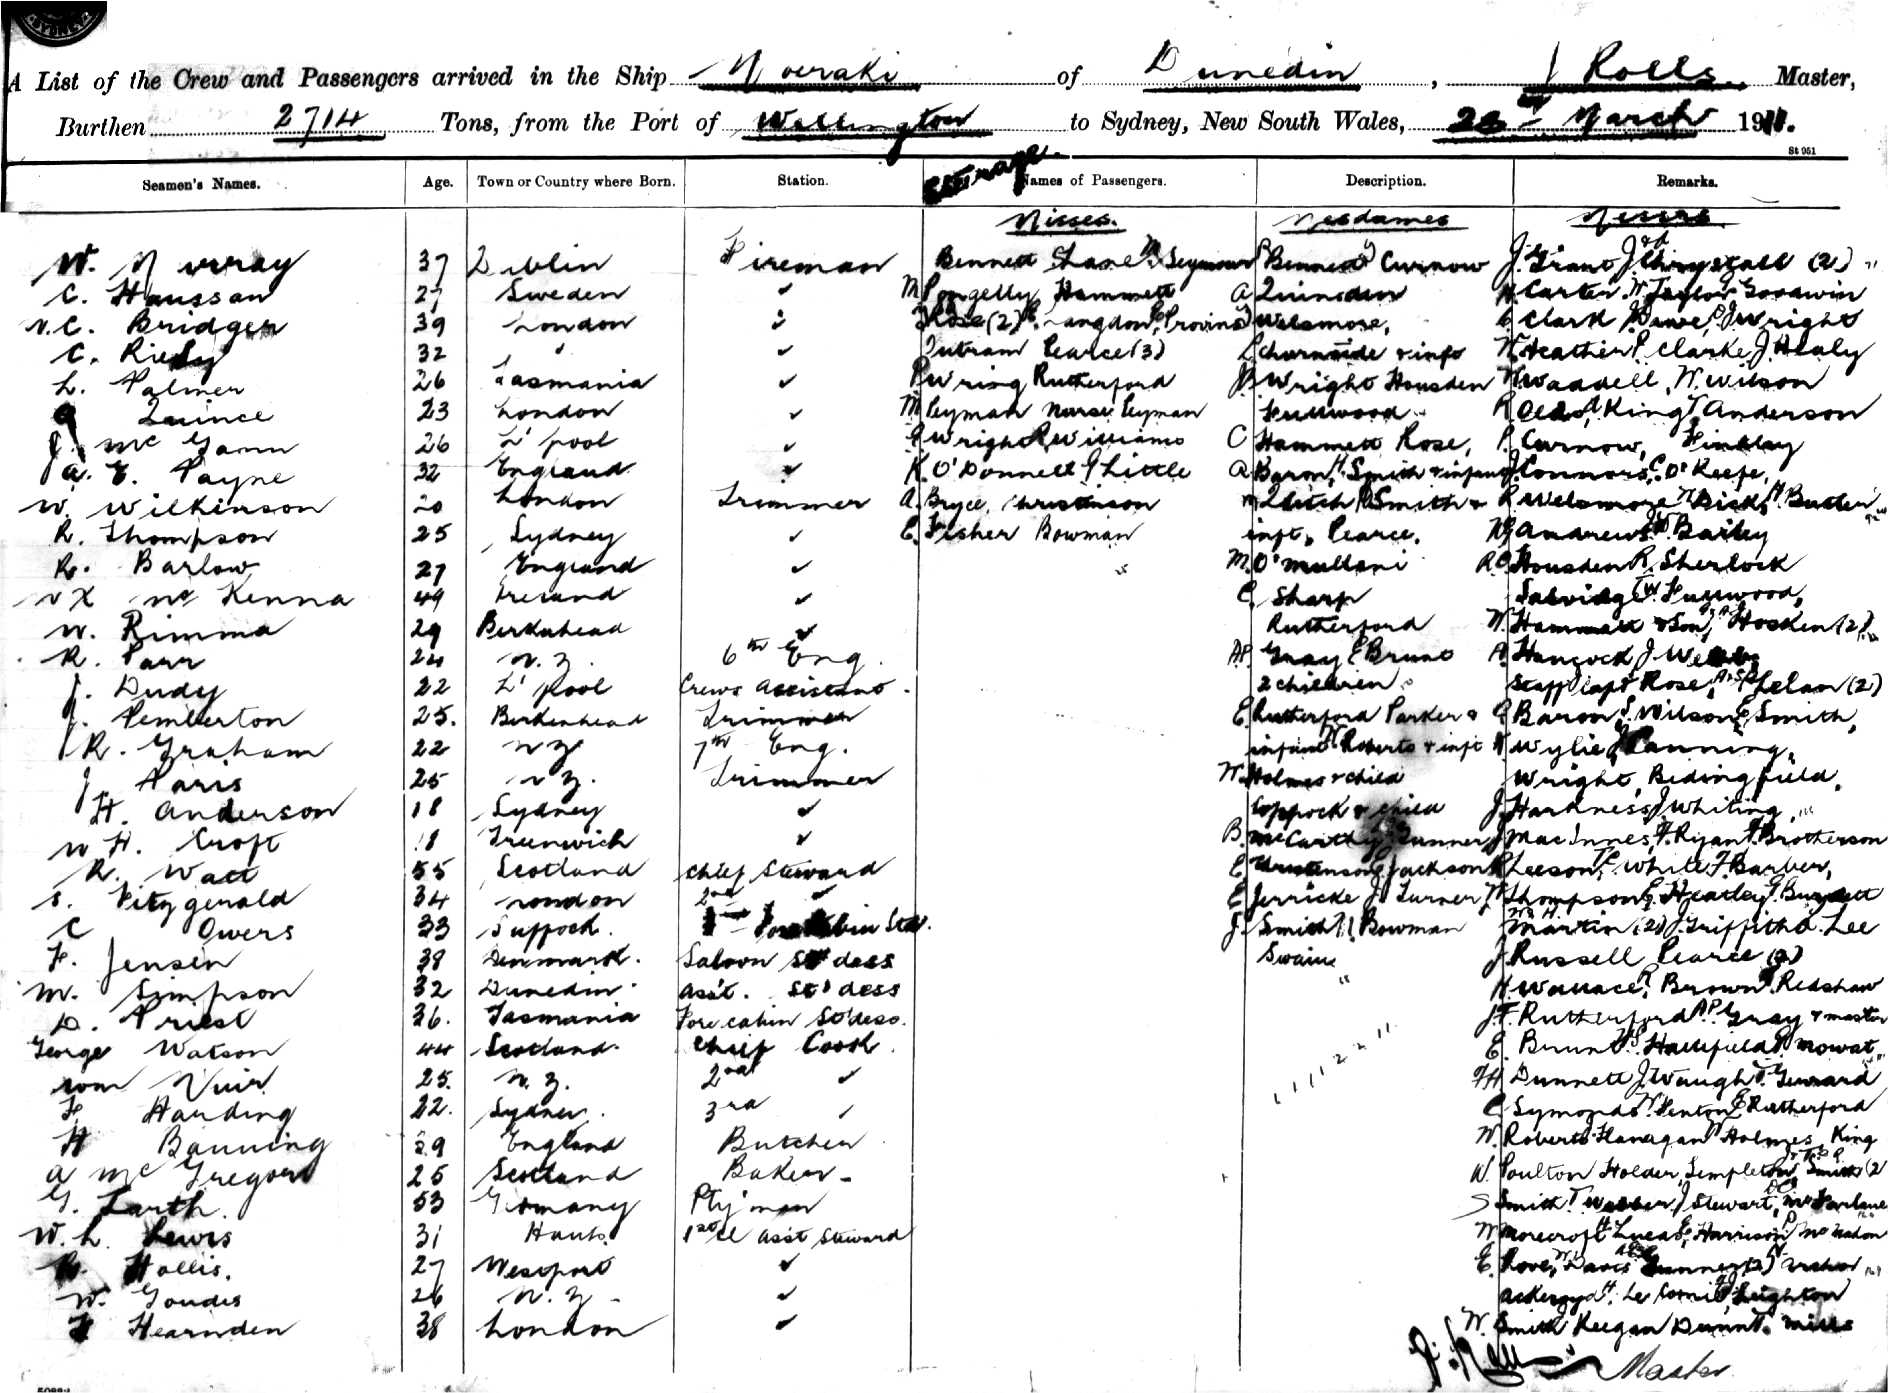 A List of the Crew and Passengers arrived in the Ship Moeraki of Dunedin, J Rolls Master,
Burthen 2714 Tons, from the Port of Wellington to Sydney, New South Wales, March 1911.
St 951
Seamen's Names. Age. Town or Country where Born. Station. Steerage Names of Passengers. Description. Remarks.
Misses. Mesdames Messrs
W. Murray 37 Dublin Fireman Bennett Seymour Bennett Curnow J. Grant J Chrystall (2)
C. Haussan 27 Sweden ✓ Pengelly Hammett A Carter W. Taylor Goodwin
Bridger 39 London ✓ Rose (2) Langdon Welsmore, Clark Dawe, J Wright
C. Riely 32 " ✓ Outram Pearce (3) Charnside & inft Heather P. Clarke, J Healy
L. Palmer 26 Tasmania ✓ Wring Rutherford Wright Housden Waddell, W. Wilson
Quince 23 London ✓ M Peyman Nurse Peyman Fullwood King, Anderson
J. McGann 26 L'pool ✓ E Wright R Williams C Hammett Rose, P. Curnow, Finklay
A. E. Payne 32 England ✓ K. O'Donnell J Little A Baron, Smith & infant J. Connors, C. O'Keefe,
W. Wilkinson 20 London Trimmer A. Bryce, Christinson Smith & R Welsmore Dick, H. Butler
R. Thompson 25 Sydney ✓ E. Fisher Bowman inft, Pearce, Andrews Bailey
R. Barlow 27 England ✓ M. O'Mullani Housden R. Sherlock
McKenna 49 Ireland ✓ C. Sharp Salvidge Fullwood,
W. Rimma 29 Birkenhead ✓ Rutherford W. Hammett & Son, Hosken (2)
R. Parr 24 N. Z. 6th Eng. A.P. Gray E Brunt A. Hancock J
J. Dudy 22 L'pool Crews Assistant 2 children Staff Capt Rose, Phelan (2)
J. Pemberton 25. Birkenhead Trimmer E. Rutherford Parker & G Baron Wilson, E. Smith,
R. Graham 22 N Z 7th Eng. infant Roberts & inft Wylie Canning,
J. Paris 25 N. Z. Trimmer W. Holmes & child Wright, Bedingfield,
H. Anderson 18 Sydney ✓ Coppock & child J. Harkness, J Whiting,
W H. Croft 18 Greenwich ✓ B. McCarthy Gunner J MacInnes, F. Ryan, Brotherson
R. Watt 55 Scotland Chief Steward E Christenson Jackson Leeson, White F. Barber,
S. Fitzgerald 34 London 2nd ✓ E Jerricke J Turner W Thompson, Heatley Burdett
C Owers 33 Suffock. J. Smith Bowman Martin (2) J. Griffith A. Lee
F. Jensen 38 Denmark. Saloon St'dess Swaine J Russell Pearce (2)
M. Simpson 32 Dunedin. Asst. St'dess H. Wallace, Brown Redshaw
D. Priest 36. Tasmania Fore cabin St'dess. J.F. Rutherford A.P. Gray & master
George Watson 44 Scotland. Chief Cook. E. Brunt Hallifield Mowat
Tom Muir 25. N. Z. 2nd ✓ Dunnett J Waugh
F Harding 22. Sydney. 3rd ✓ C Symonds Penton E Rutherford
H Banning 29 England Butcher W. Roberts Flanagan Holmes, King
A McGregor 25 Scotland Baker Poulton Holder Templeton, Smith (2
G. Larth. 53 Germany Pty'man S Smith T Webber J Stewart, McFarlane
W. L. Lewis 31 Hants. 1st cl Asst Steward W Morecroft H Lucas, E Harrison McMahon
Hollis, 27 Westport ✓ E. Rowe, Davis (2)
W. Goudis 26 N. Z. ✓ Ackeroyd H. Le Cornu Leighton
Hearnden 38 London ✓ W. Smith Keegan Dunn T. Mills
Master